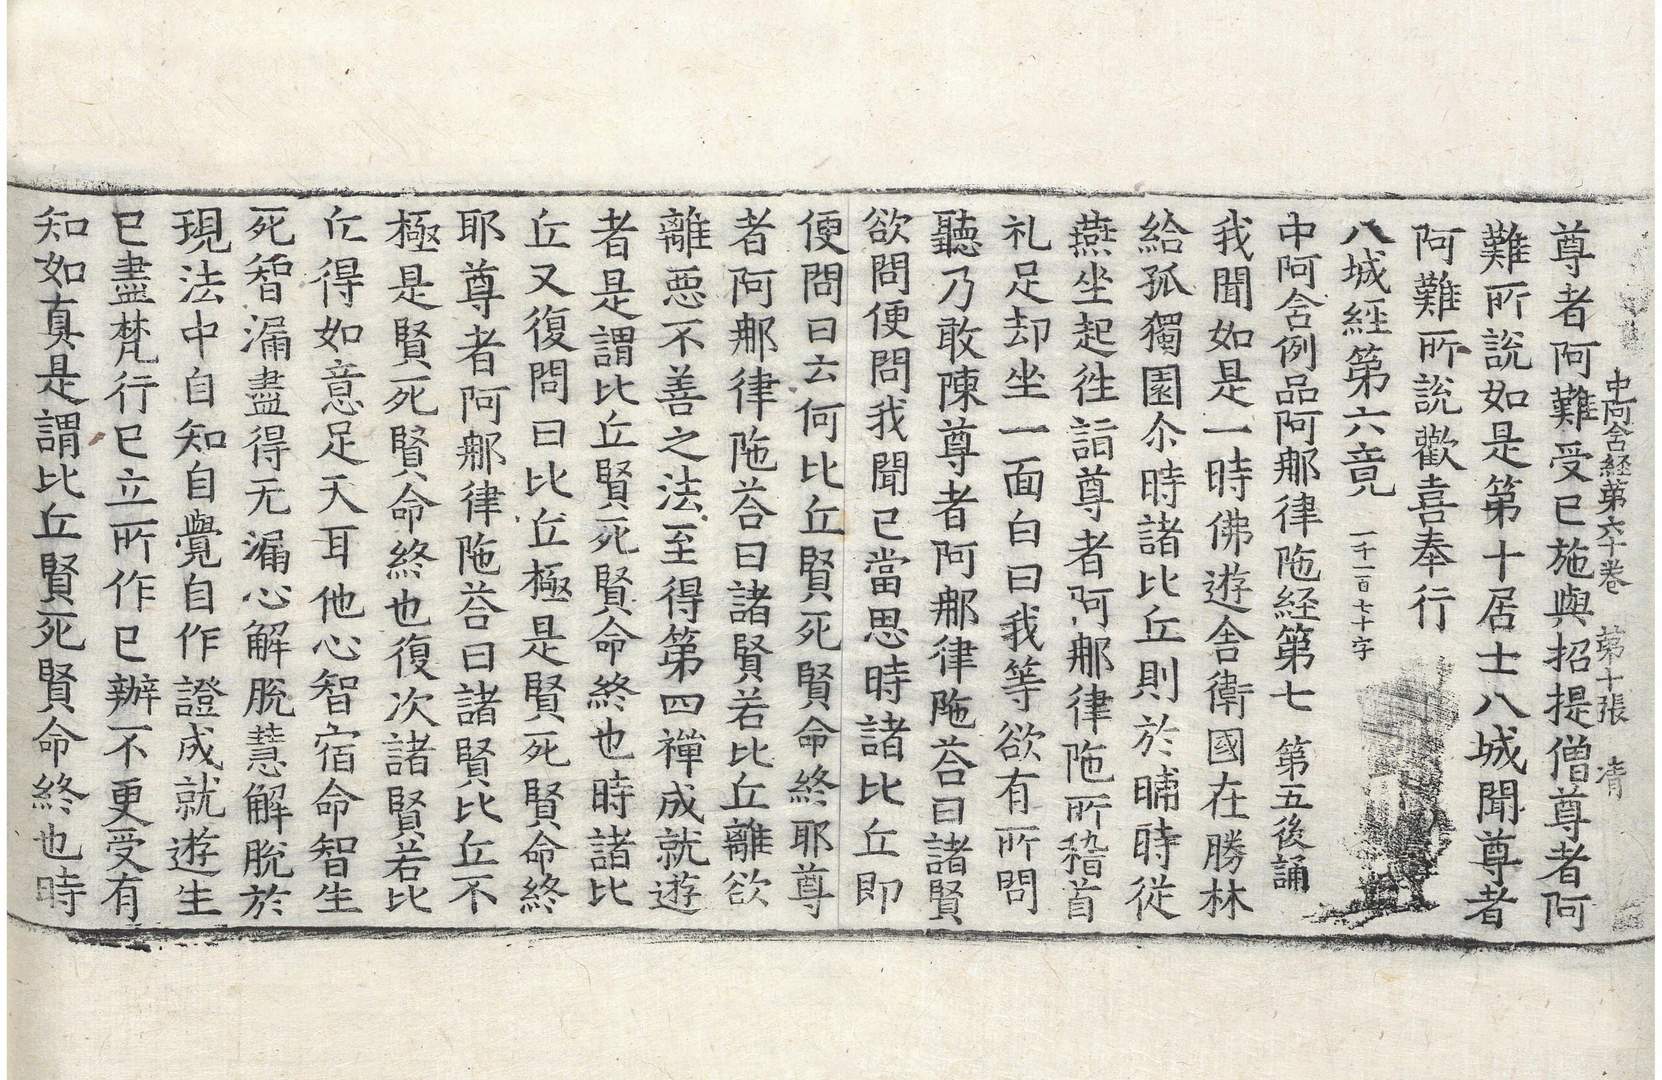 中阿含経苐六十卷　苐十張　清
尊者阿難受已施與招提僧尊者阿
難所說如是第十居士八城聞尊者
阿難所說歡喜奉行
八城經第六竟　一千一百七十字
中阿含例品阿那律陁経第七　第五後誦
我聞如是一時佛遊舍衛國在勝林
給孤獨園尒時諸比丘則於晡時從
燕坐起往詣尊者阿那律陁所稽首
礼足却坐一面白曰我等欲有所問
聽乃敢陳尊者阿那律陁荅曰諸賢
欲問便問我聞已當思時諸比丘即
便問曰云何比丘賢死賢命終耶尊
者阿那律陁荅曰諸賢若比丘離欲
離惡不善之法至得第四禪成就遊
者是謂比丘賢死賢命終也時諸比
丘又復問曰比丘極是賢死賢命終
耶尊者阿那律陁荅曰諸賢比丘不
極是賢死賢命終也復次諸賢若比
丘得如意足天耳他心智宿命智生
死智漏盡得无漏心解脫慧解脫於
現法中自知自覺自作證成就遊生
已盡梵行已立所作已辦不更受有
知如真是謂比丘賢死賢命終也時